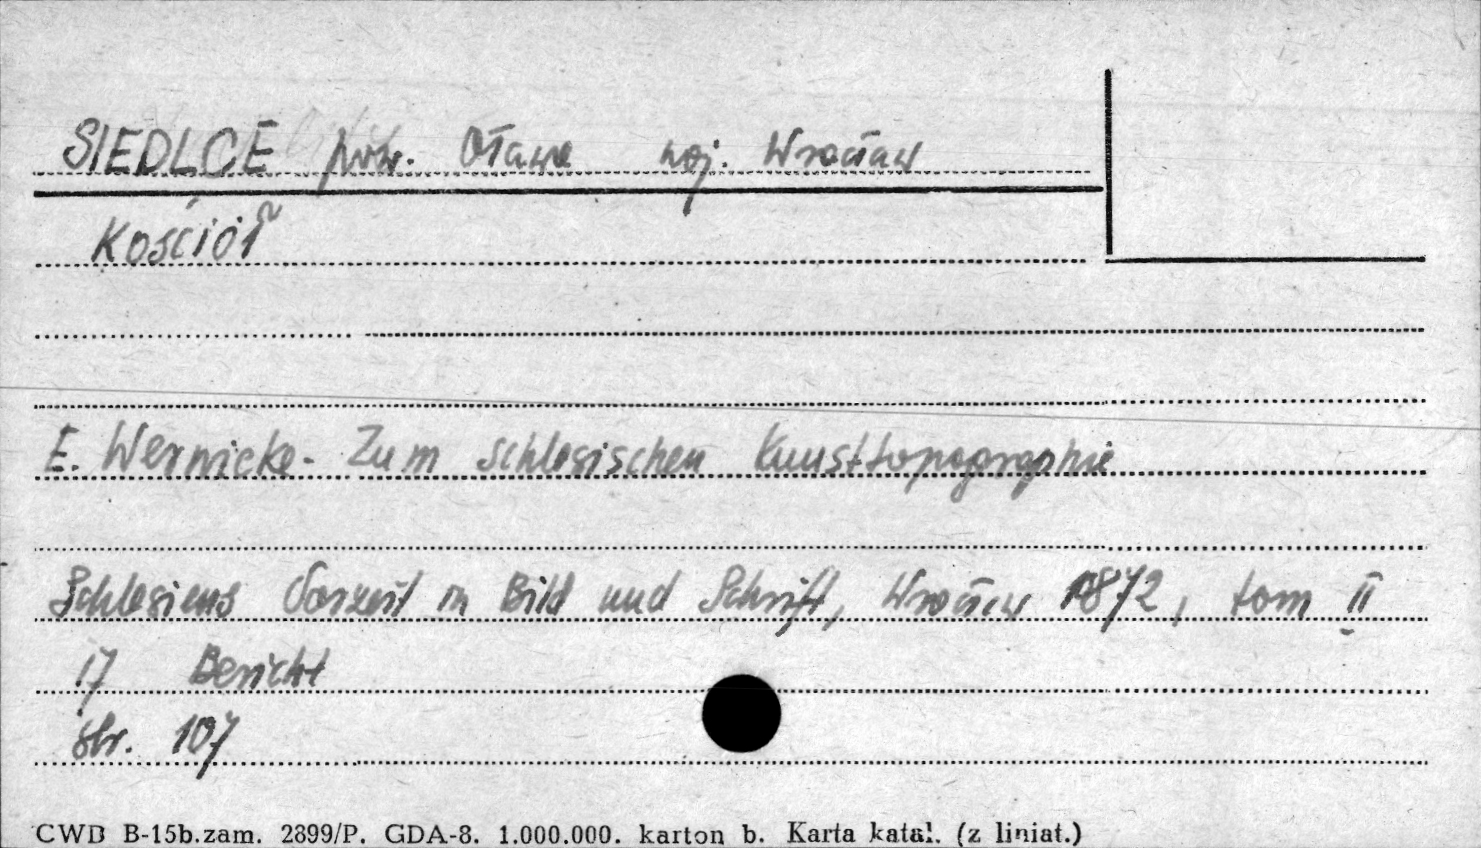 SIEDLCE pow. Oława woj. Wrocław
Kościół
E. Wernicke - Zum schlesischen Kunsttopographie
Schlesiens Vorzeit in Bild und Schrift, Wrocław 1872, tom II
17 Bericht
str. 107
CWD B-15b.zam. 2899/P. GDA-8. 1.000.000. karton b. Karta katal. (z liniat.)